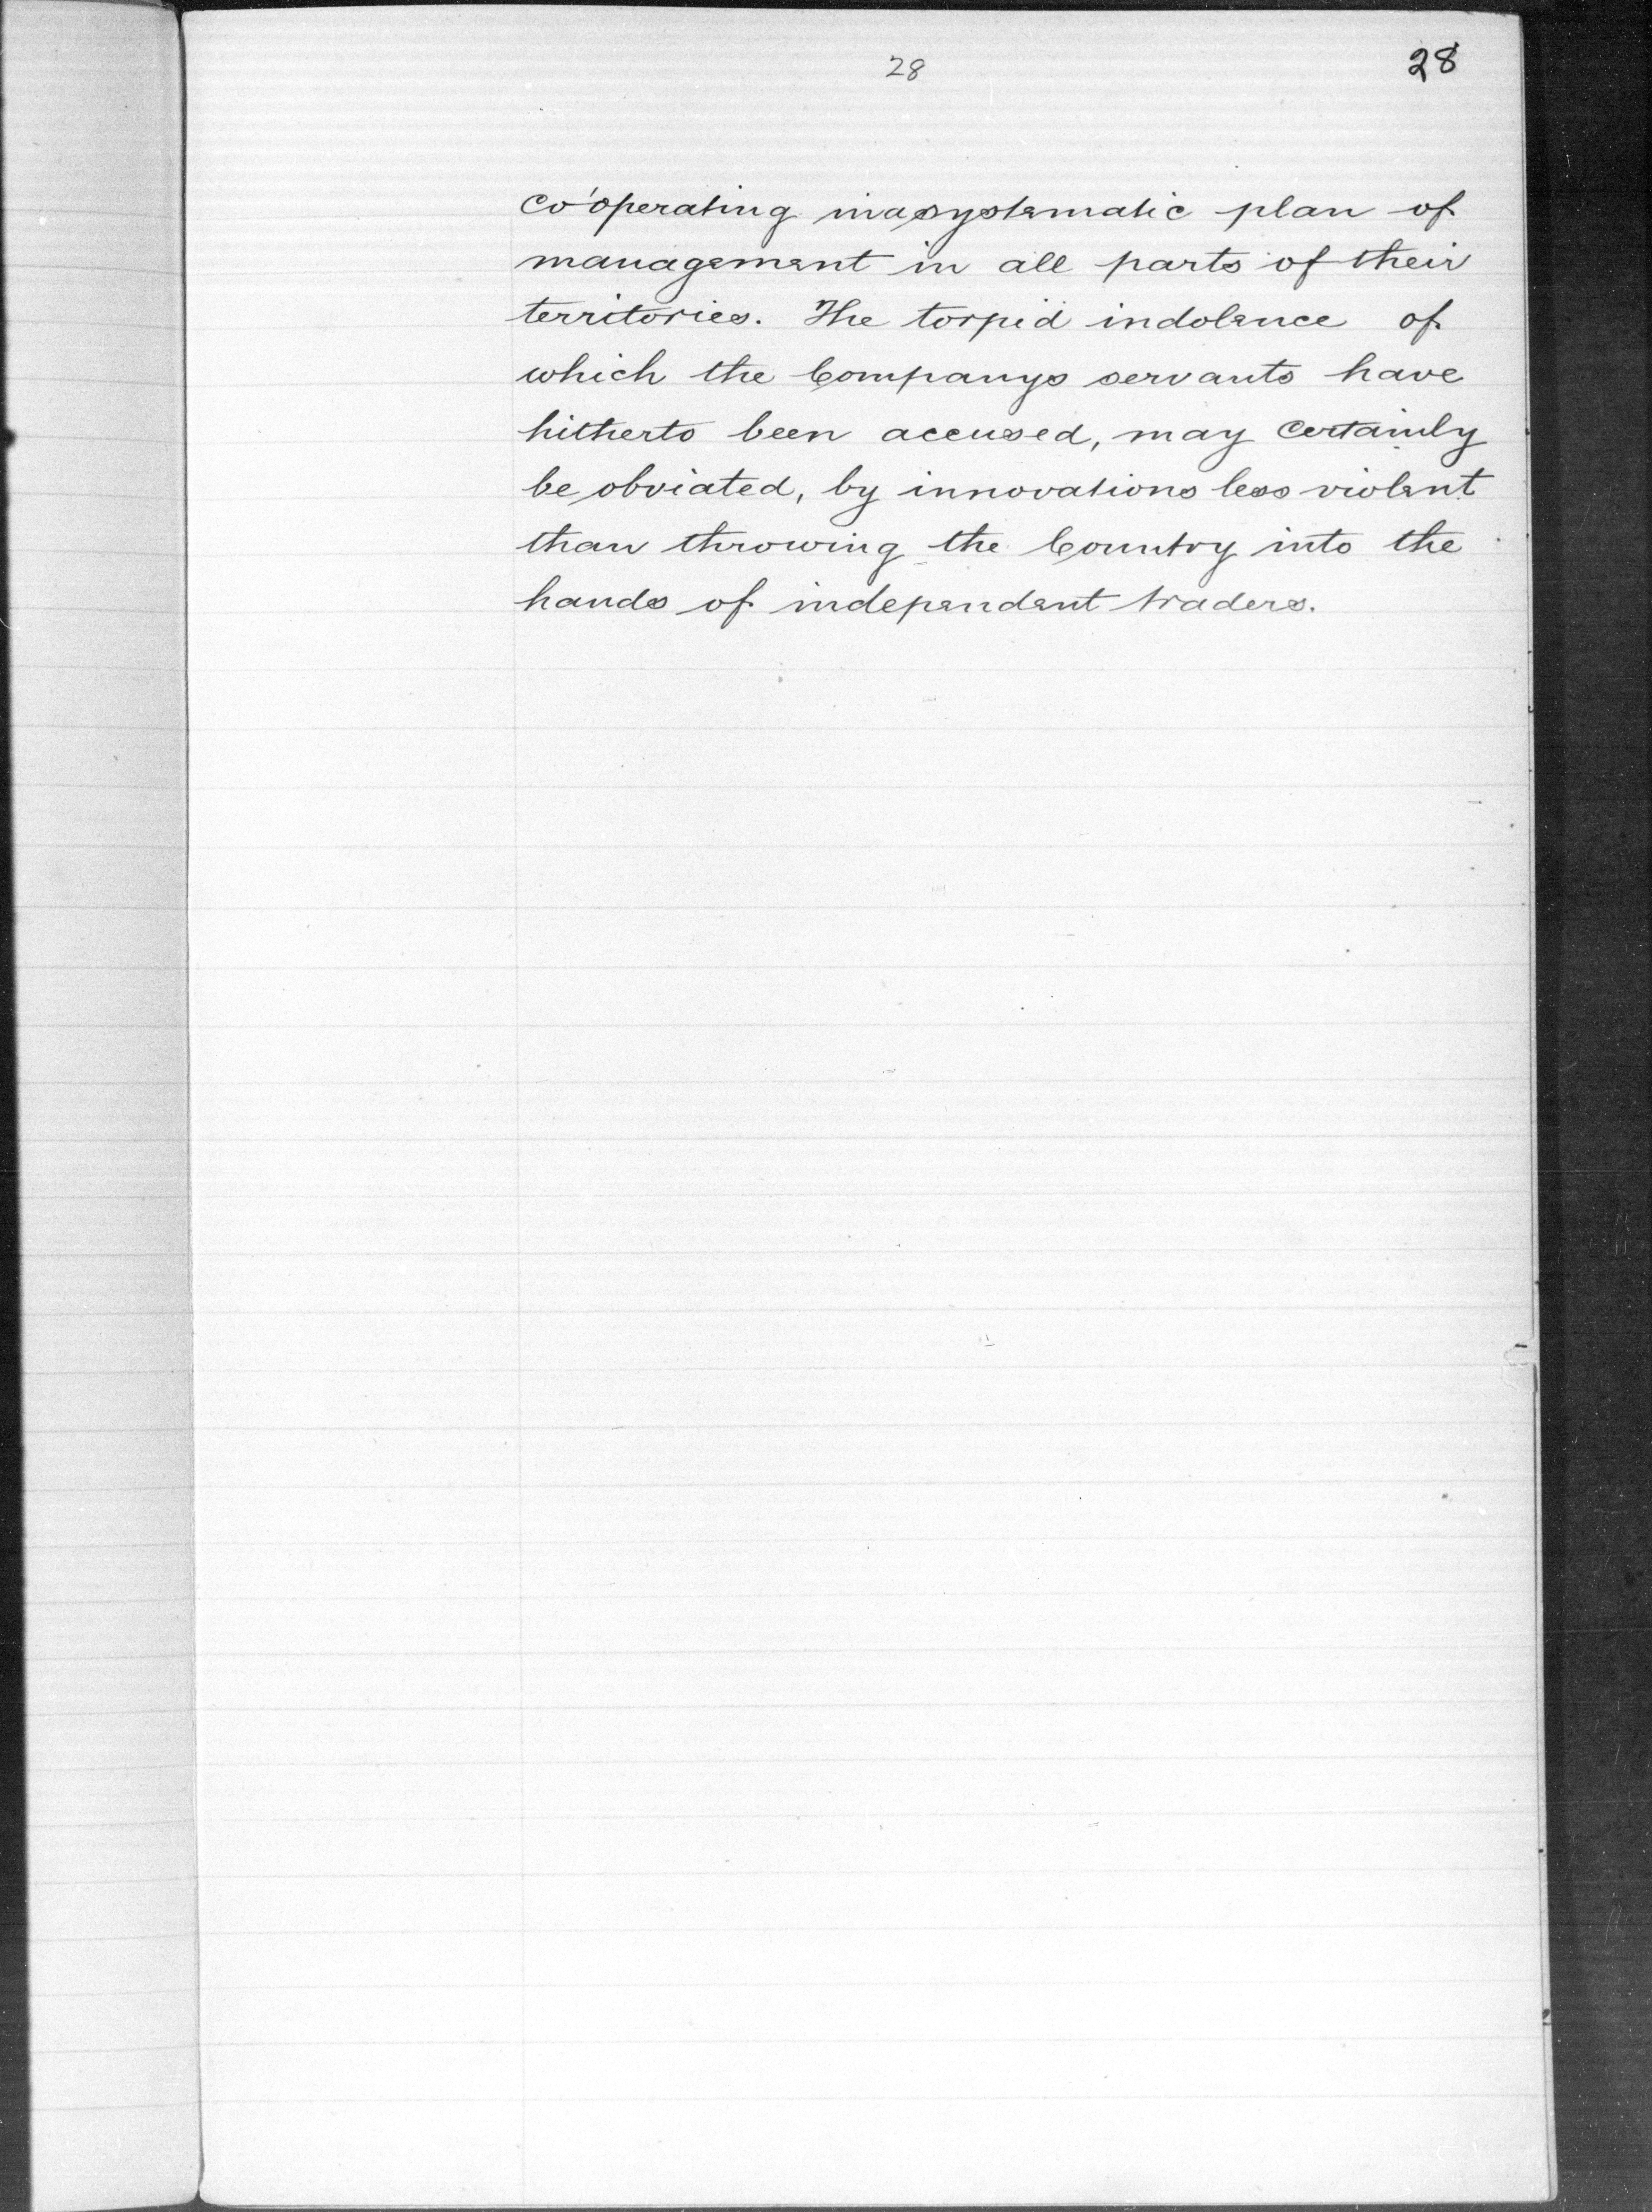 28
28
co'operating in a systematic plan of
management in all parts of their
territories. The torpid indolence of
which the Companys servants have
hitherto been accused, may certainly
be obviated, by innovations less violent
than throwing the Country into the
hands of independent traders.